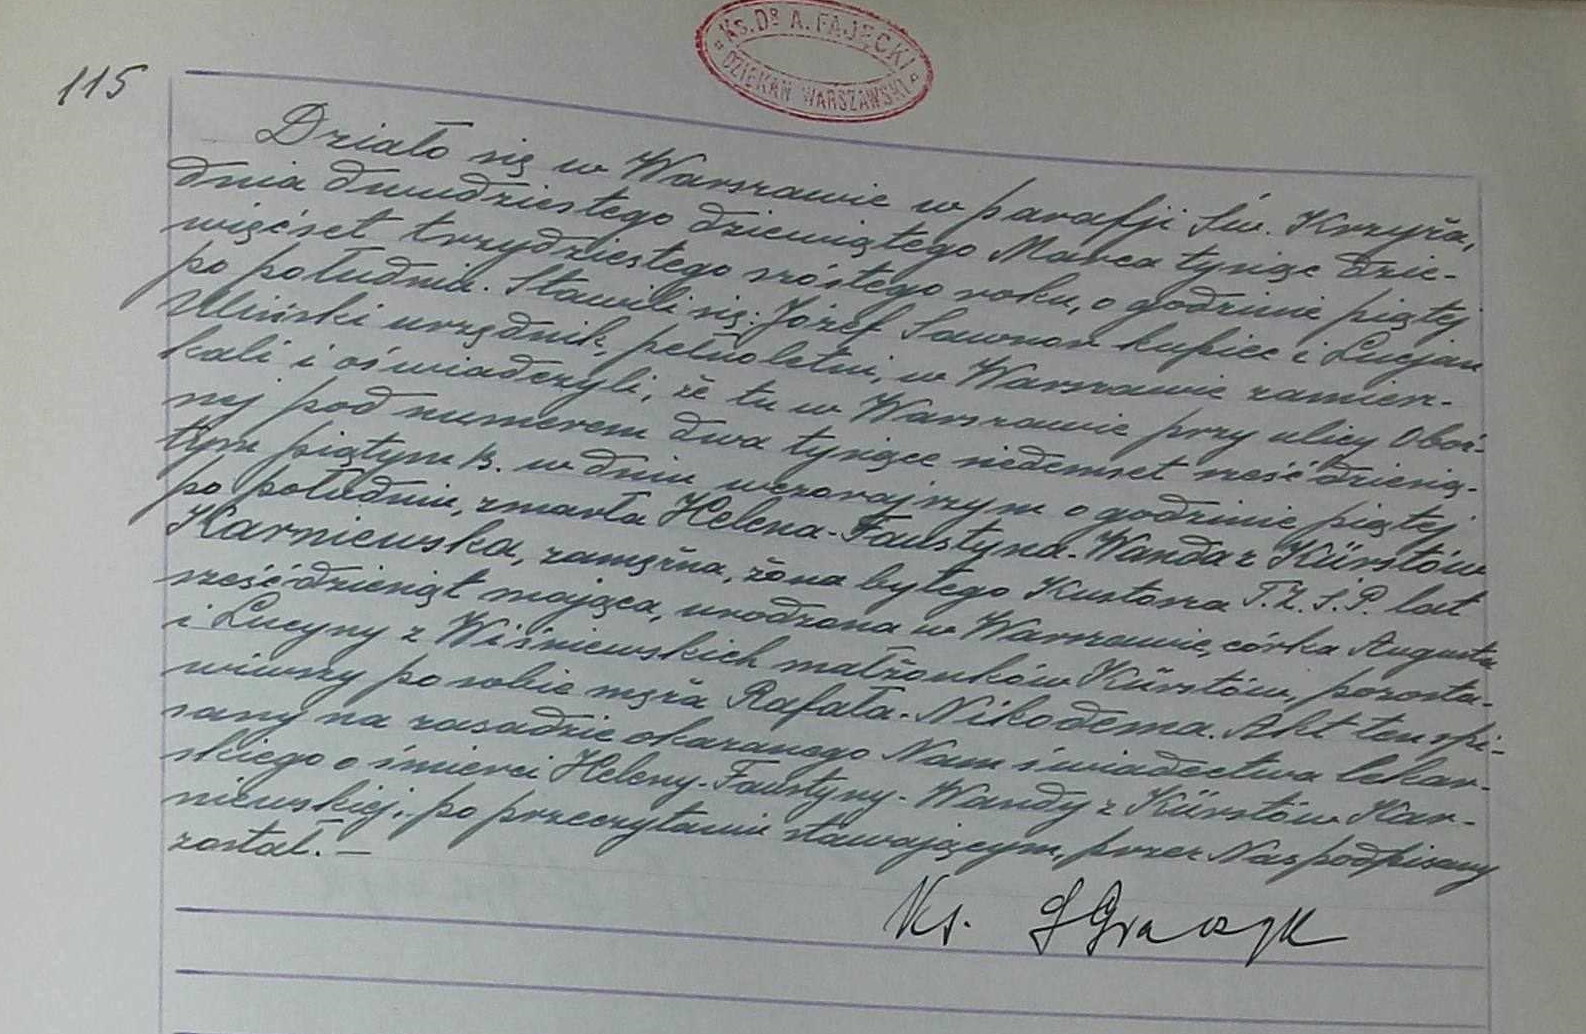 KS. DR A. FAJĘCKI
DZIEKAN WARSZAWSKI
115
Działo się w Warszawie w parafji Św. Krzyża,
dnia dwudziestego dziewiątego Marca tysiąc dzie-
więćset trzydziestego szóstego roku, o godzinie piątej
po południu. Stawili się: Józef Sawnor kupiec i Lucjan
Uliński urzędnik, pełnoletni, w Warszawie zamiesz-
kali i oświadczyli, że tu w Warszawie przy ulicy Oboź-
nej pod numerem dwa tysiące siedemset sześćdziesią-
tym piątym B. w dniu wczorajszym o godzinie piątej
po południu, zmarła Helena-Faustyna-Wanda z Kürstów
Karniewska, zamężna, żona byłego Kustosza T.Z.S.P. lat
sześćdziesiąt mająca, urodzona w Warszawie, córka Augusta
i Lucyny z Wiśniewskich małżonków Kürstów, pozosta-
wiwszy po sobie męża Rafała-Nikodema. Akt ten spi-
sany na zasadzie okazanego Nam świadectwa lekar-
skiego o śmierci Heleny-Faustyny-Wandy z Kürstów Kar-
niewskiej, po przeczytaniu stawającym, przez Nas podpisany
został. —
Ks.